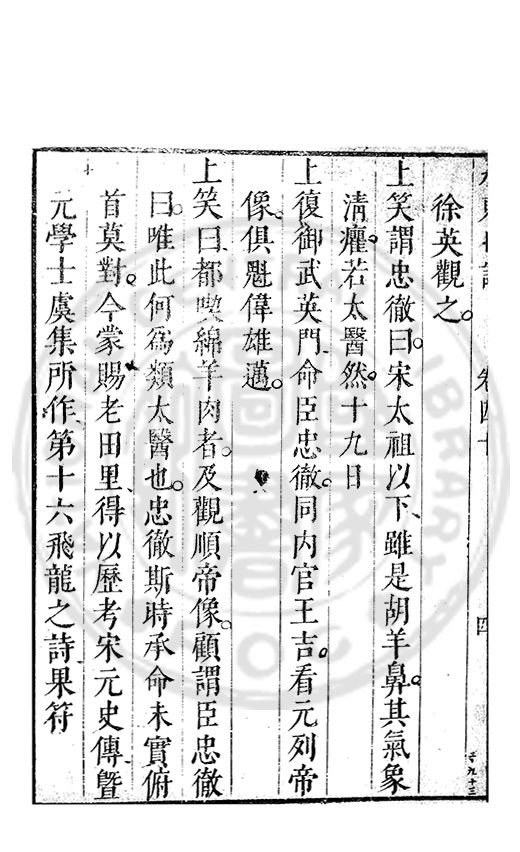 徐英觀之
上笑謂忠徹曰宋太祖以下雖是胡羊鼻其氣象
清癯若太醫然十九日
上復御武英門命臣忠徹同內官王吉看元列帝
像俱魁偉雄邁
上笑曰都喫綿羊肉者及觀順帝像顧謂臣忠徹
曰唯此何爲類太醫也忠徹斯時承命未實俯
首莫對今蒙賜老田里得以歷考宋元史傳曁
元學士虞集所作第十六飛龍之詩果符